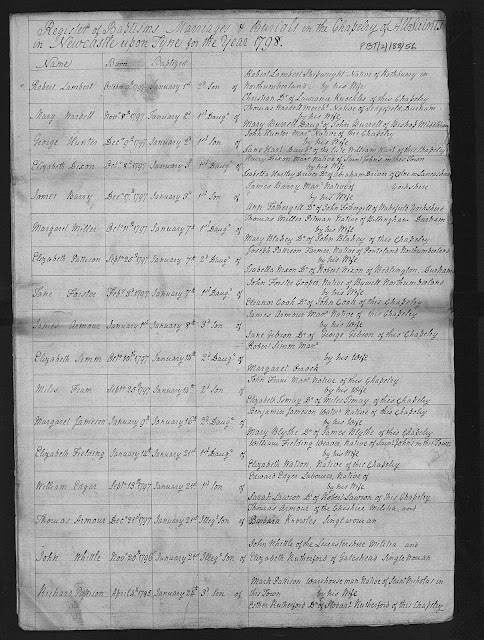 Register of Baptisms Marriages & Burials in the Chapelry of Allsaints
in Newcastle upon Tyne for the Year 1798.
PBT/2/189/56
Name Born Baptized
Robert Lambert 1797 January 1st 2d Son of
Robert Lambert Shipwright Native of Rothbury in
Northumberland by his Wife
Christian Dr of Lawrence Knuckles of this Chapelry
Mary Wardell Novr 8th 1797 January 2d 1st Daugr of
Thomas Wardell Native of Durham
by his Wife
Mary Burrell Daugr of John Burrell of Bishop
George Hunter Decr 9th 1797 January 2d 1st Son of
John Hunter Marr Native of this Chapelry
by his Wife
Jane Hart Daugr of William Hart of this Chapelry
Elizabeth Dixon Octr 1797 January 3d 1st Daugr of
Henry Dixon Marr Native of Saint Johns in this Town
by his Wife
James Barry Decr 1797 January 3d 1st Son of
James Barry Marr Native of Yorkshire
by his Wife
Ann Dr of John of Yorkshire
Margaret Miller Octr 11th 1797 January 7th 1st Daugr of
Thomas Miller Pitman Native of Billingham Durham
by his Wife
Mary Blakey Dr of John Blakey of this Chapelry
Elizabeth Pattison Septr 20th 1797 January 7th 2d Daugr of
Joseph Pattison Farmer Native of Ponteland Northumberland
by his Wife
Isabella Nixon Dr of Robert Nixon of Durham
Jane Forster 1797 January 7th 1st Daugr of
John Forster Cooper Native of Bywell Northumberland
by his Wife
Eleanor Cook Dr of John Cook of this Chapelry
James Armour January 1st January 8th 3d Son of
James Armour Marr Native of this Chapelry
by his Wife
Jane Gibson Dr of George Gibson of this Chapelry
Elizabeth Simm Octr 1797 January 14th 2d Daugr of
Robert Simm Marr
by his Wife
Margaret
Miles Fram Septr 25th 1797 January 14th 2d Son of
John Fram Marr Native of this Chapelry
by his Wife
Elizabeth Dr of Miles of this Chapelry
Margaret Jameson January 9th January 16th 2d Daugr of
Benjamin Jameson Native of this Chapelry
by his Wife
Mary Blythe Dr of James Blythe of this Chapelry
Elizabeth Fielding January 14th January 21st 1st Daugr of
William Fielding Weaver Native of Saint Johns in this Town
by his Wife
Elizabeth Watson, Native of this Chapelry
William Edgar Septr 13th 1797 January 21st 1st Son of
Edward Edgar Labourer, Native of
by his Wife
Sarah Lawson Dr of Robert Lawson of this Chapelry
Thomas Armour Decr 21st 1797 January 21st Illegl Son of
Thomas Armour of the Cheshire Militia, and
Barbara Knowles Singlewoman
John Whittle Novr 20th 1796 January 21st Illegl Son of
John Whittle of the Leicestershire Militia and
Elizabeth Rutherford of Gateshead Single Woman
Richard Pattison April 4th 1795 January 24th 3d Son of
Mark Pattison Warehouse man Native of Saint Nicholas in
this Town by his Wife
Esther Rutherford Dr of Robart Rutherford of this Chapelry